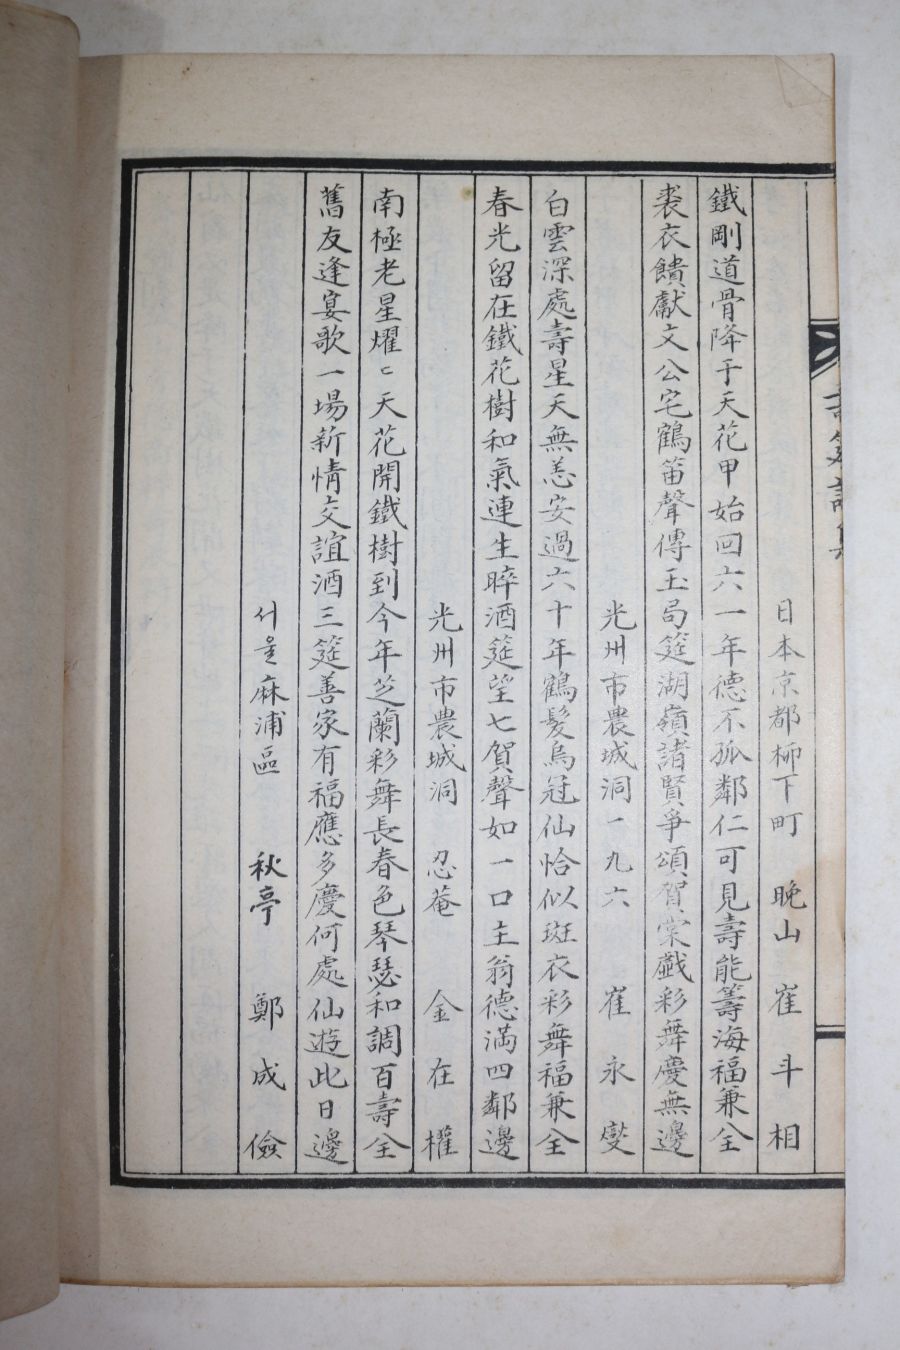 日本京都柳下町 晩山 崔斗相
鐵剛道骨降于天花甲始回六一年德不孤鄰仁可見壽能籌海福兼全
裘衣饋獻文公宅鶴笛聲傳玉局筵湖嶺諸賢爭頌賀棠戱彩舞慶無邊
光州市農城洞一九六 崔永燮
白雲深處壽星天無恙安過六十年鶴髮烏冠仙恰似斑衣彩舞福兼全
春光留在鐵花樹和氣連生晬酒筵望七賀聲如一口主翁德滿四鄰邊
光州市農城洞 忍菴 金在權
南極老星燿ᄃ天花開鐵樹到今年芝蘭彩舞長春色琴瑟和調百壽全
舊友逢宴歌一場新情交誼酒三筵善家有福應多慶何處仙遊此日邊
서울麻浦區 秋亭 鄭成儉